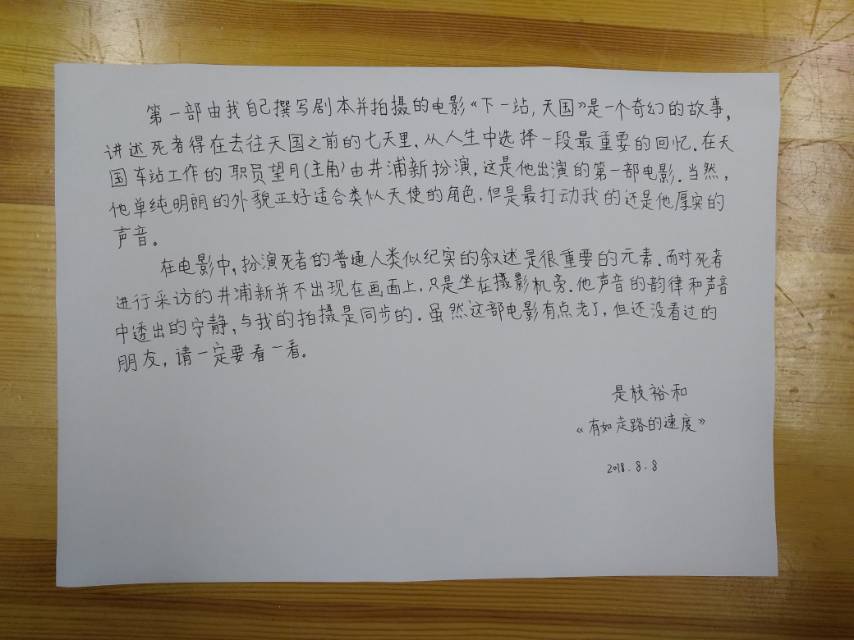 第一部由我自己撰写剧本并拍摄的电影《下一站，天国》是一个奇幻的故事，
讲述死者得在去往天国之前的七天里，从人生中选择一段最重要的回忆．在天
国车站工作的职员望月（主角）由井浦新扮演，这是他出演的第一部电影．当然，
他单纯明朗的外貌正好适合类似天使的角色，但是最打动我的还是他厚实的
声音。
在电影中，扮演死者的普通人类似纪实的叙述是很重要的元素．而对死者
进行采访的井浦新并不出现在画面上，只是坐在摄影机旁．他声音的韵律和声音
中透出的宁静，与我的拍摄是同步的．虽然这部电影有点老了，但还没看过的
朋友，请一定要看一看．
是枝裕和
《有如走路的速度》
2018.8.8